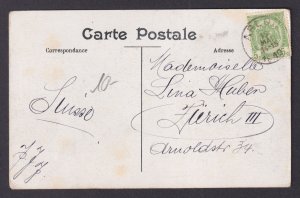 Carte Postale
Correspondance
Adresse
10-
Suisse
Mademoiselle
Lina Huber
Zürich III
Arnoldstr 34.